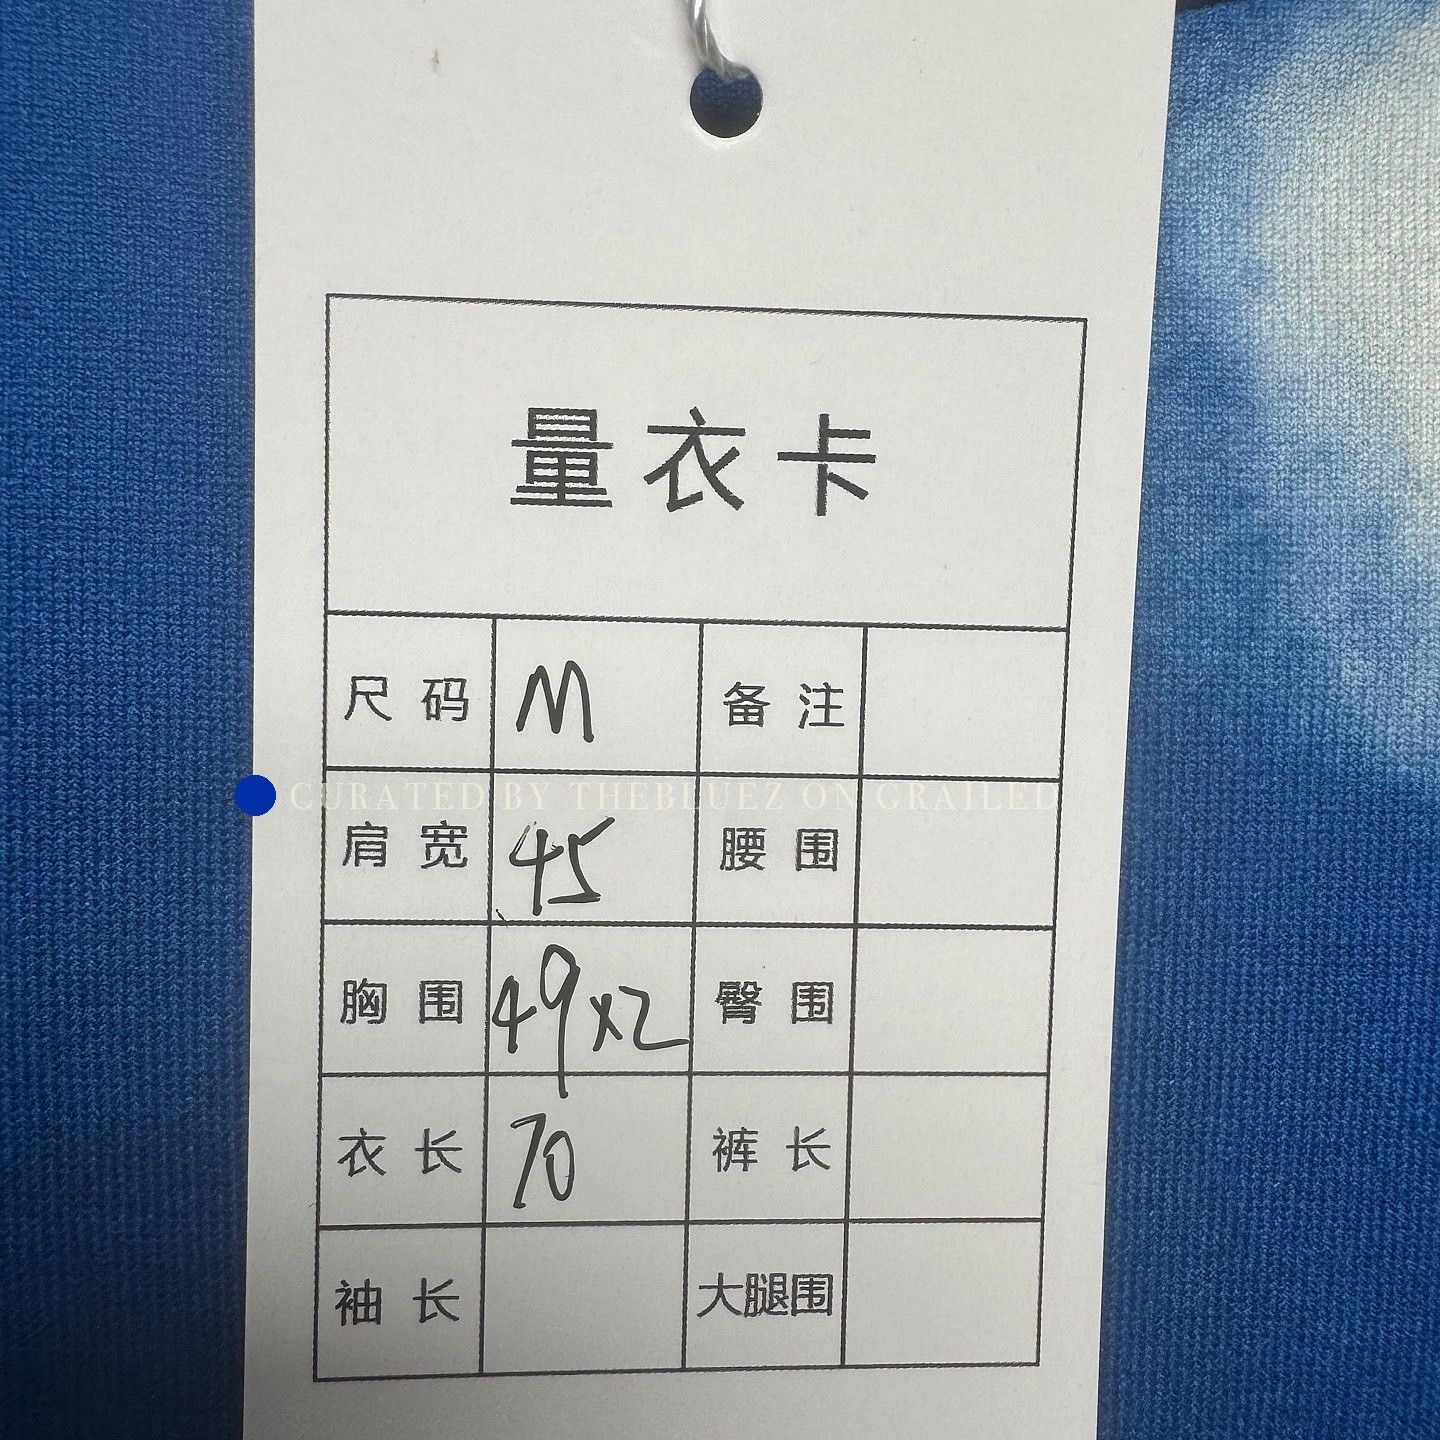 量衣卡
尺码 M 备注
CURATED BY THEBLUEZ ON GRAILED
肩宽 45 腰围
胸围 49x2 臀围
衣长 70 裤长
袖长 大腿围